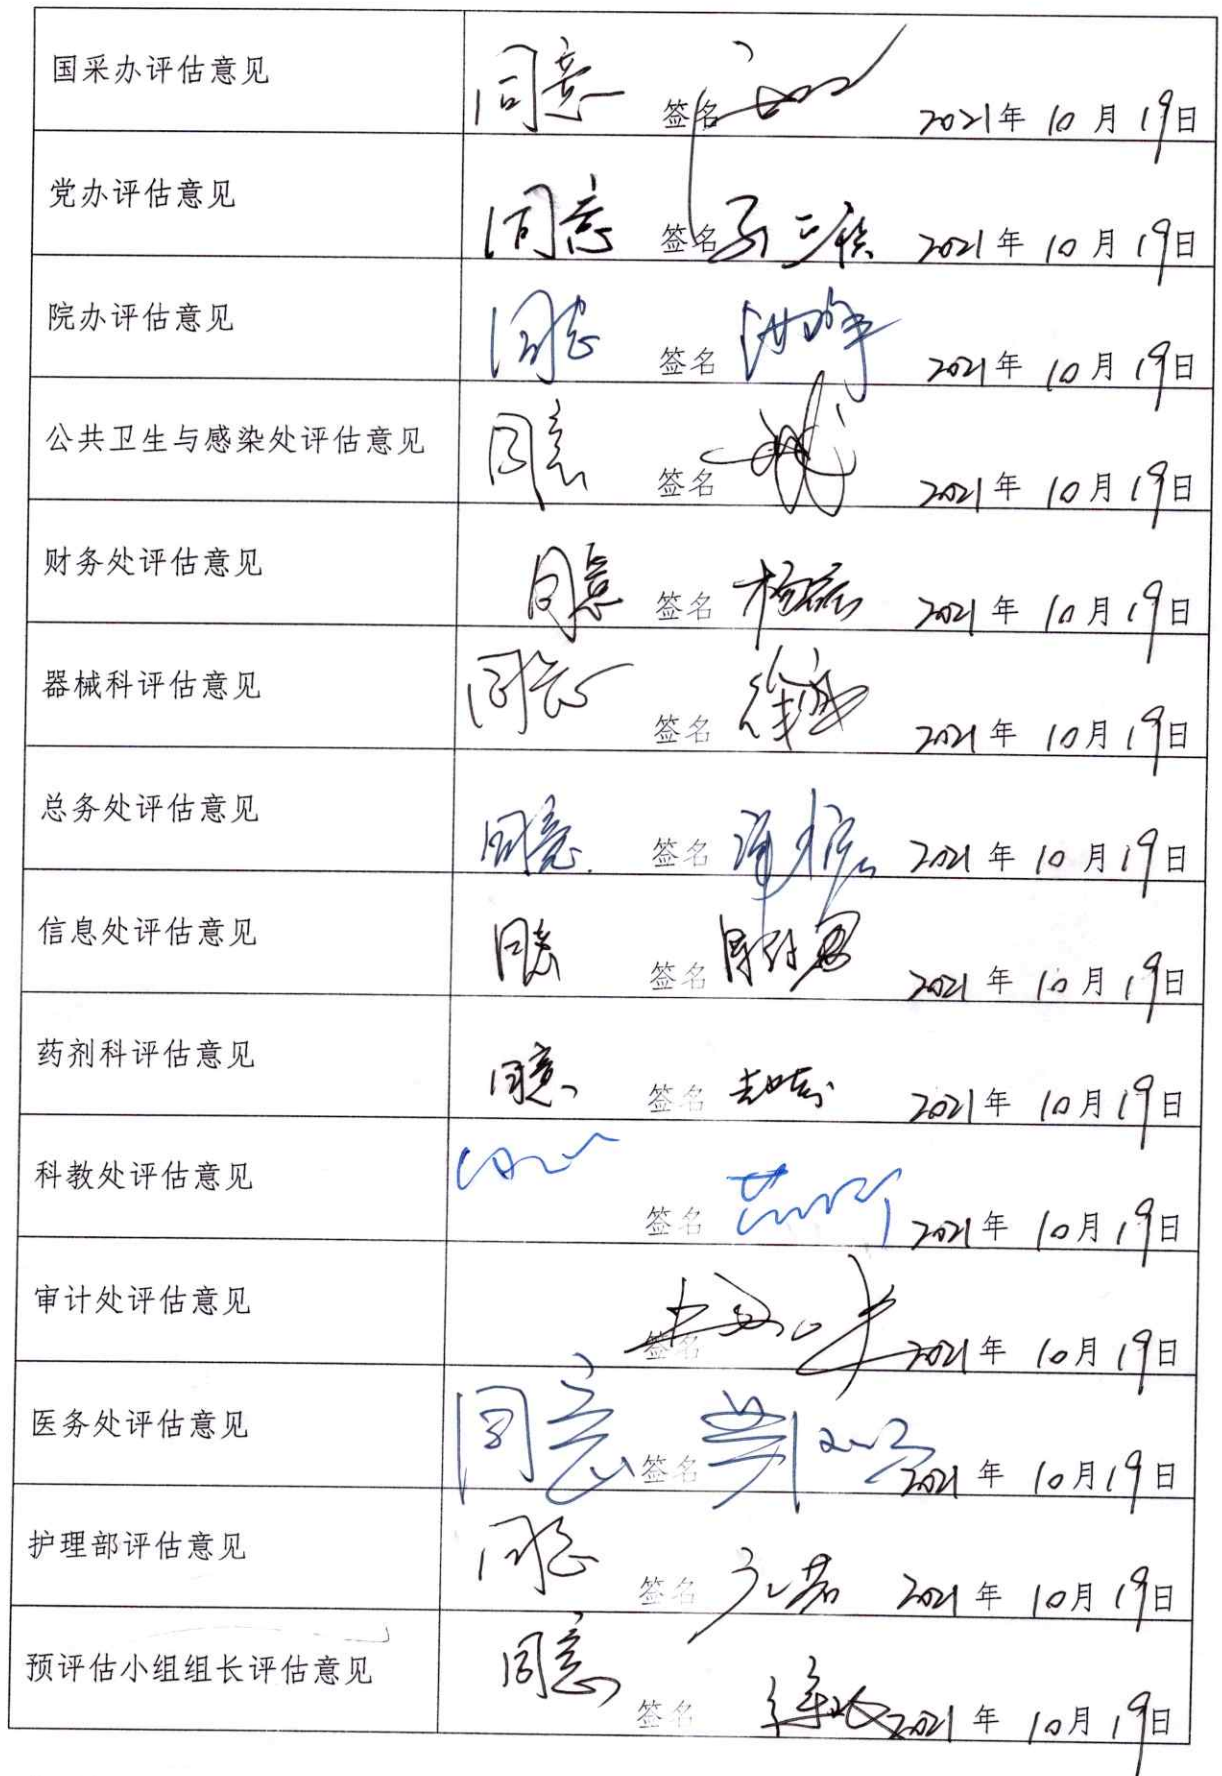 国采办评估意见
同意 签名 2021年 10月 19日
党办评估意见
同意 签名 2021年 10月 19日
院办评估意见
同意 签名 2021年 10月 19日
公共卫生与感染处评估意见
同意 签名 2021年 10月 19日
财务处评估意见
同意 签名 2021年 10月 19日
器械科评估意见
同意 签名 2021年 10月 19日
总务处评估意见
同意. 签名 2021年 10月 19日
信息处评估意见
同意 签名 2021年 10月 19日
药剂科评估意见
同意 签名 2021年 10月 19日
科教处评估意见
签名 2021年 10月 19日
审计处评估意见
签名 2021年 10月 19日
医务处评估意见
同意 签名 2021年 10月 19日
护理部评估意见
同意 签名 2021年 10月 19日
预评估小组组长评估意见
同意 签名 2021年 10月 19日